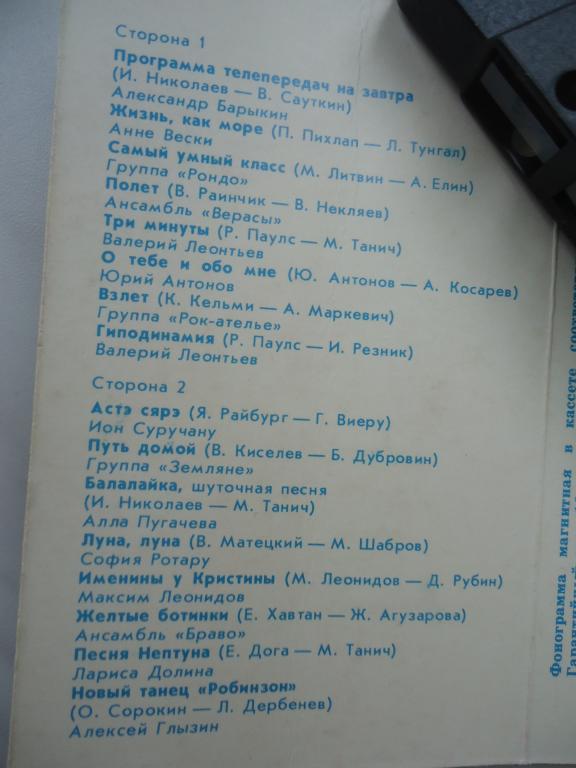 Сторона 1
Программа телепередач на завтра
(И. Николаев — В. Сауткин)
Александр Барыкин
Жизнь, как море (П. Пихлап — Л. Тунгал)
Анне Вески
Самый умный класс (М. Литвин — А. Елин)
Группа «Рондо»
Полет (В. Раинчик — В. Некляев)
Ансамбль «Верасы»
Три минуты (Р. Паулс — М. Танич)
Валерий Леонтьев
О тебе и обо мне (Ю. Антонов — А. Косарев)
Юрий Антонов
Взлет (К. Кельми — А. Маркевич)
Группа «Рок-ателье»
Гиподинамия (Р. Паулс — И. Резник)
Валерий Леонтьев
Сторона 2
Астэ сярэ (Я. Райбург — Г. Виеру)
Ион Суручану
Путь домой (В. Киселев — Б. Дубровин)
Группа «Земляне»
Балалайка, шуточная песня
(И. Николаев — М. Танич)
Алла Пугачева
Луна, луна (В. Матецкий — М. Шабров)
София Ротару
Именины у Кристины (М. Леонидов — Д. Рубин)
Максим Леонидов
Желтые ботинки (Е. Хавтан — Ж. Агузарова)
Ансамбль «Браво»
Песня Нептуна (Е. Дога — М. Танич)
Лариса Долина
Новый танец «Робинзон»
(О. Сорокин — Л. Дербенев)
Алексей Глызин
Фонограмма магнитная в кассете
Гарантийный